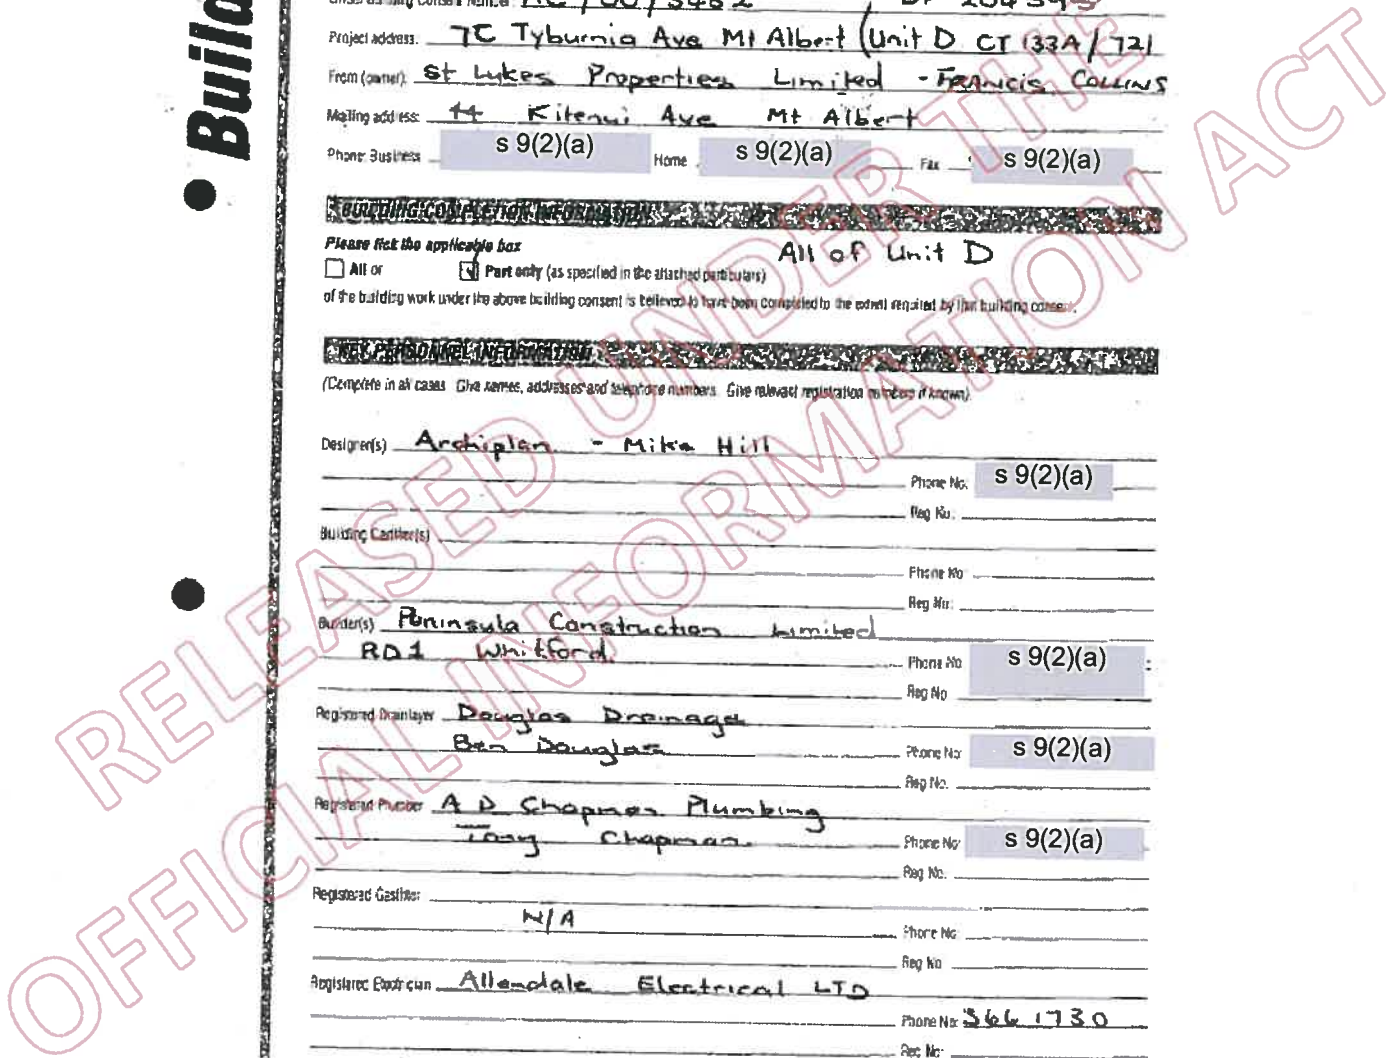 Build
AC/00/3482 DP 204393
Project address. 7C Tyburnia Ave Mt Albert (Unit D CT 133A/721
From (owner): St Lukes Properties Limited - FRANCIS COLLINS
Mailing address: 44 Kitenui Ave Mt Albert
Phone: Business s 9(2)(a) Home s 9(2)(a) Fax s 9(2)(a)
BUILDING COMPLETION INFORMATION
Please tick the applicable box All of Unit D
All or Part only (as specified in the attached particulars)
of the building work under the above building consent is believed to have been completed to the extent required by that building consent.
KEY PERSONNEL INFORMATION
(Complete in all cases. Give names, addresses and telephone numbers. Give relevant registration numbers if known)
Designer(s) Archiplan - Mike Hill
Phone No. s 9(2)(a)
Reg No:
Building Certifier(s)
Phone No
Reg No:
Builder(s) Peninsula Construction Limited
RD1 Whitford. Phone No s 9(2)(a)
Reg No
Registered Drainlayer Douglas Drainage
Ben Douglas Phone No: s 9(2)(a)
Reg No.
Registered Plumber A D Chapman Plumbing
Tony Chapman. Phone No: s 9(2)(a)
Reg No.
Registered Gasfitter
N/A Phone No:
Reg No
Registered Electrician Allendale Electrical LTD
Phone No: 366 1730
Reg No:
RELEASED UNDER THE
OFFICIAL INFORMATION ACT